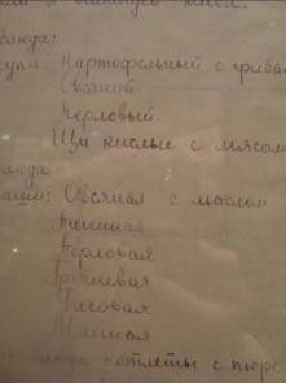 блюда:
супа: Картофельный с гриба
Овсяной
Перловый.
Щи кислые с мясом
люда
каши: Овсяная с маслом
Пшенная
Перловая
Гречневая
Рисовая
Манная
блюда котлеты с пюре